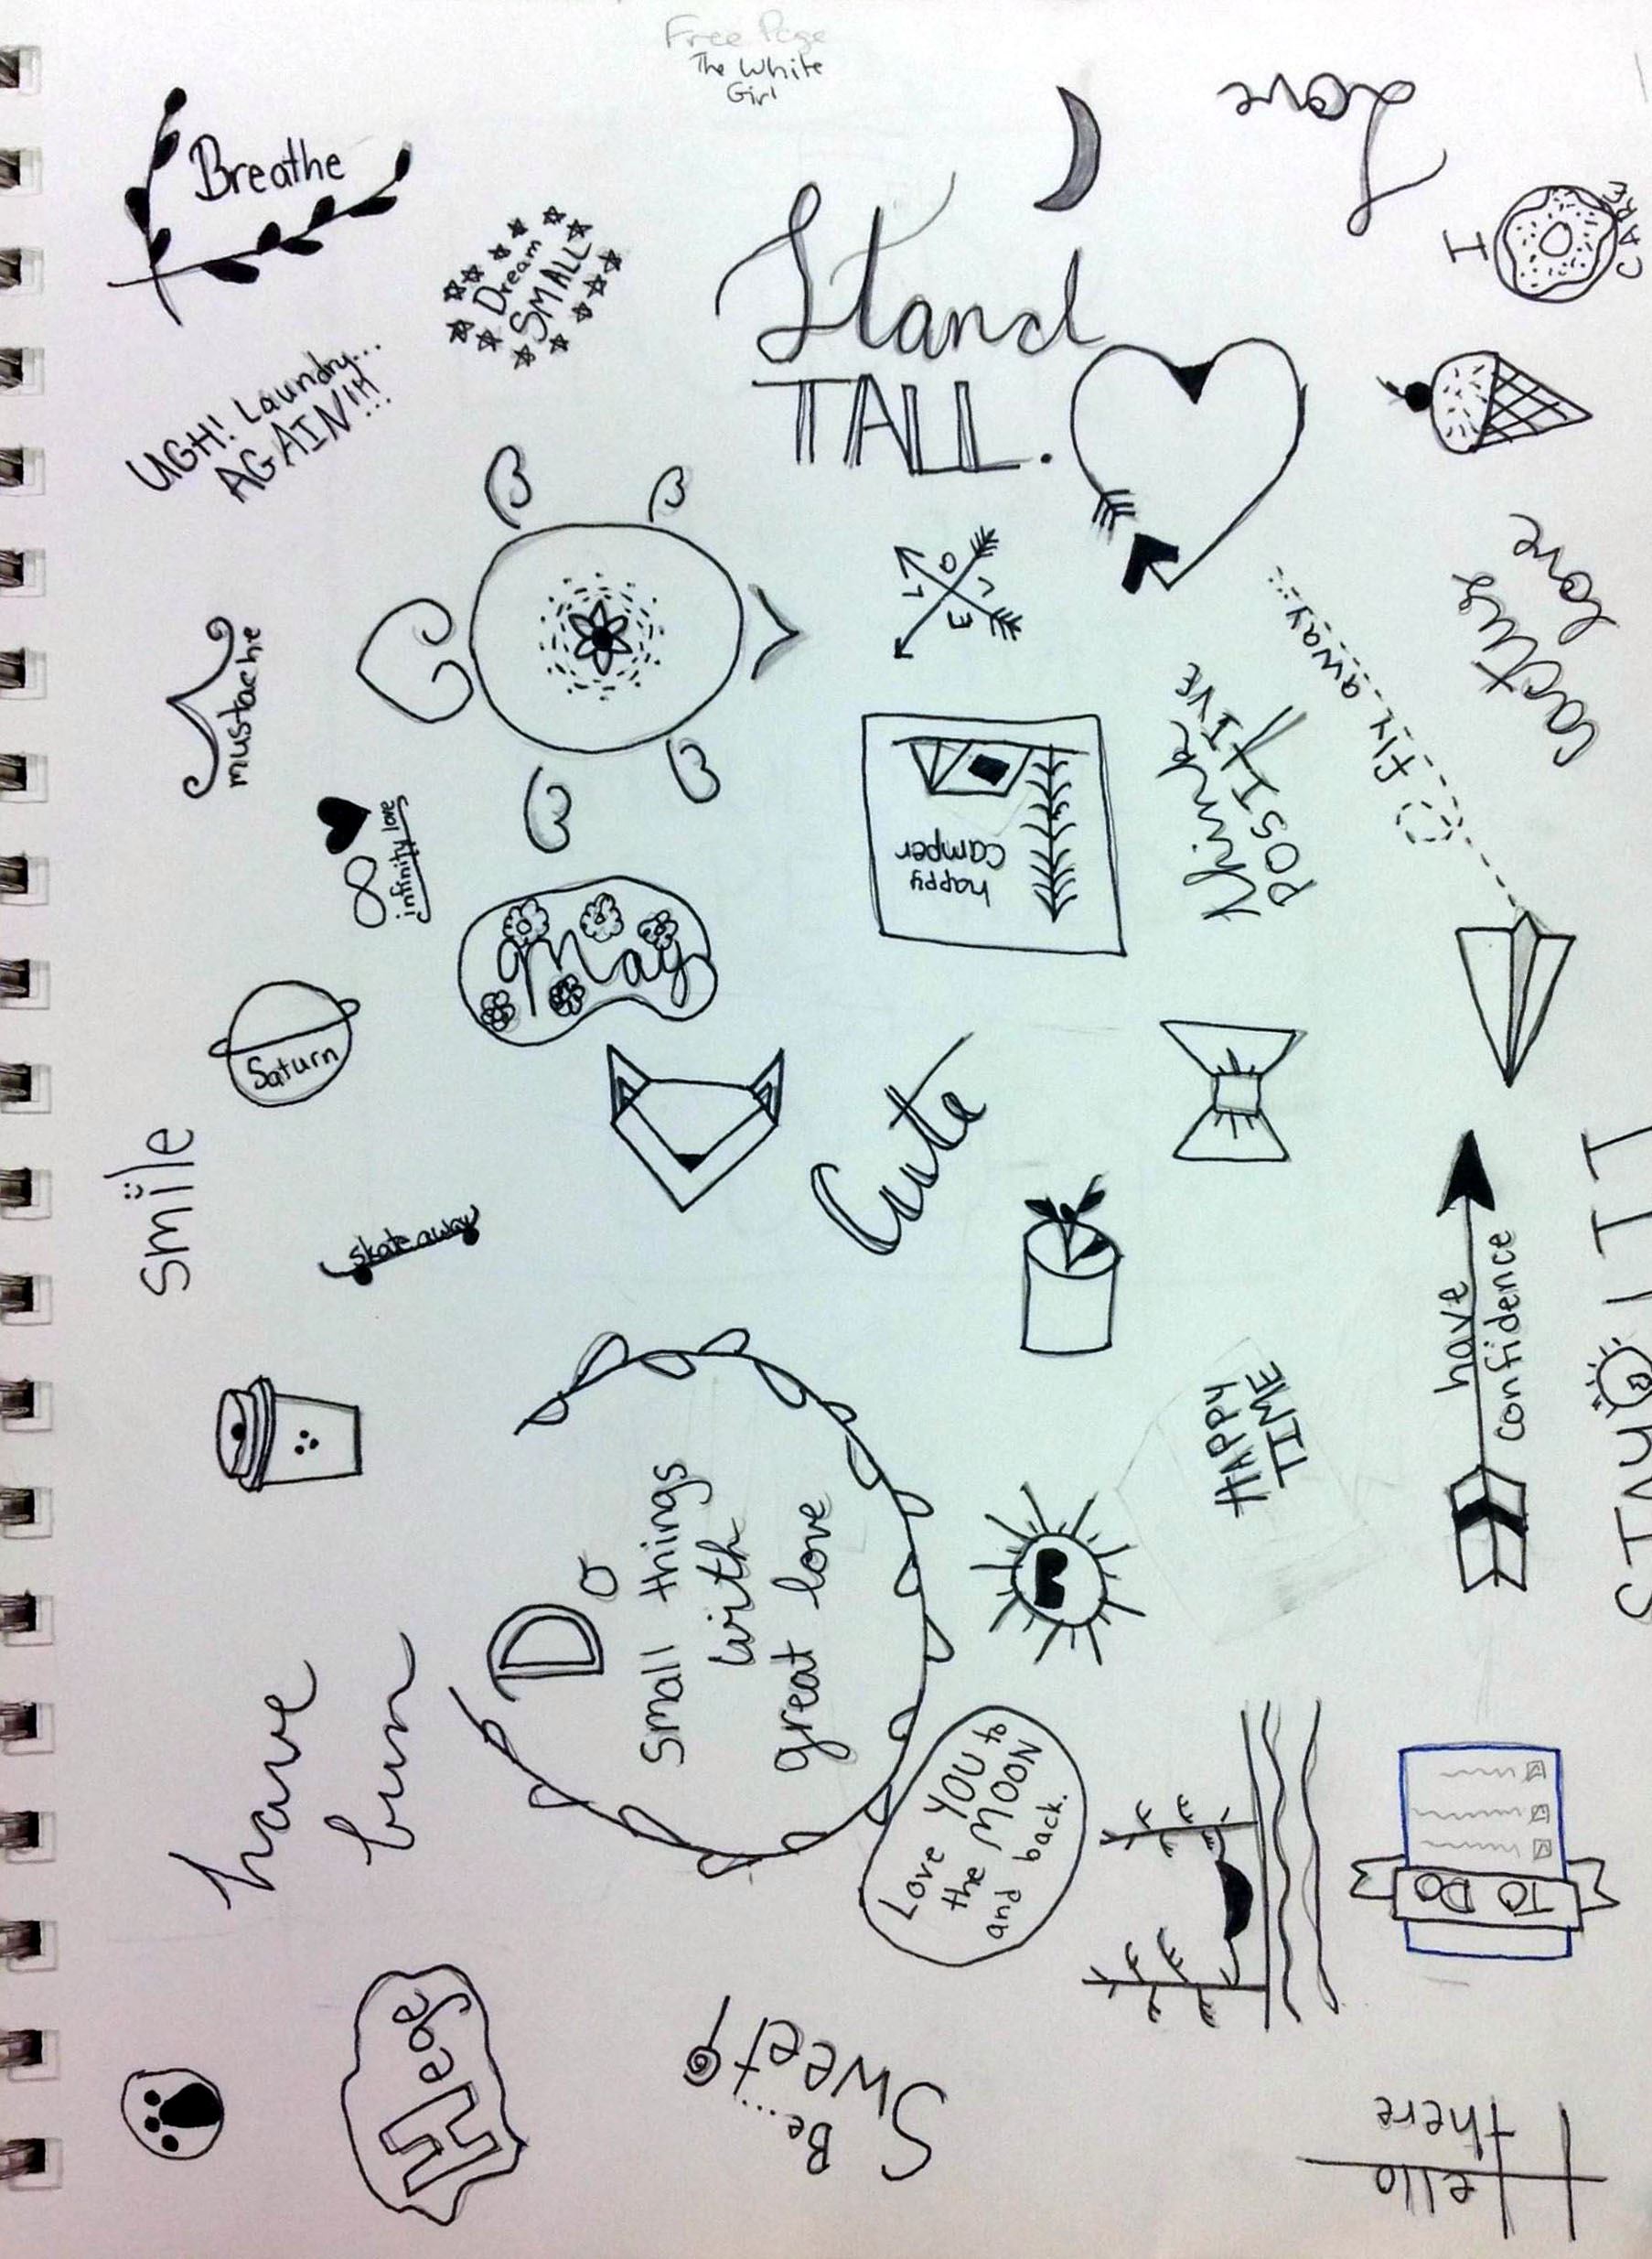 Free Page
The White
Girl
Breathe
Dream
SMALL
UGH! Laundry...
AGAIN!!!
Stand
TALL.
Love
I
CARE
mustache
infinity love
LOVE
happy
camper
Think
POSITIVE
Fly away...
cactus
love
May
Saturn
smile
skate away
Cute
have
confidence
HAPPY
TIME
Do
small things
with
great love
have
fun
Love YOU to
the MOON
and back.
TO DO
Be...
Sweet
Hello
there